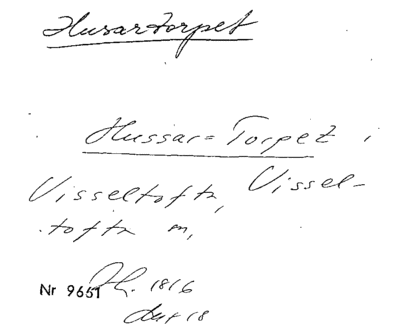 Husartorpet
Hussar=Torpet i
Visseltofta, Vissel-
tofta m,
Nr 9651 1816